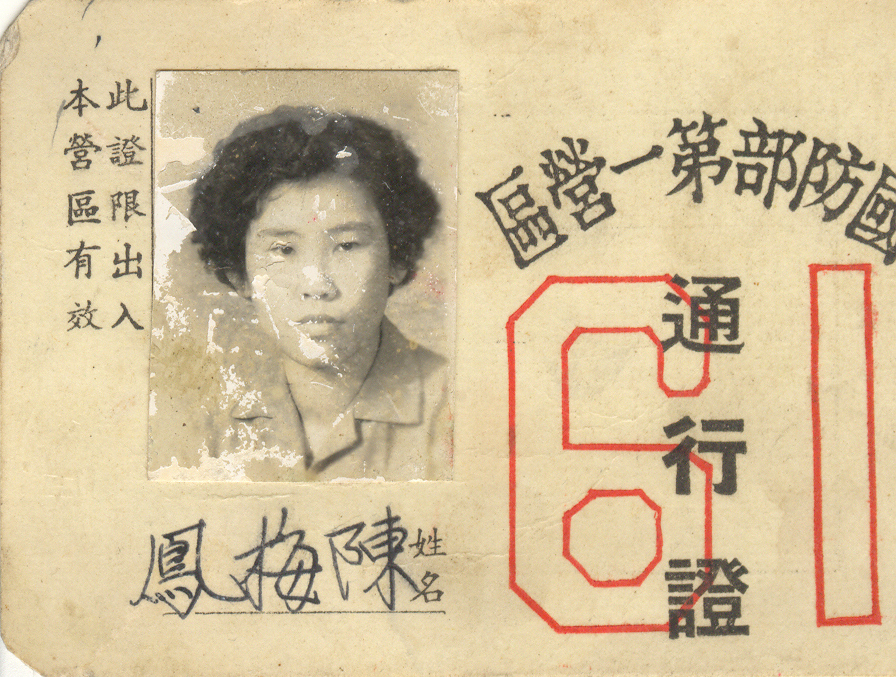 國防部第一營區
通行證
61
此證限出入
本營區有效
姓名 陳梅鳳